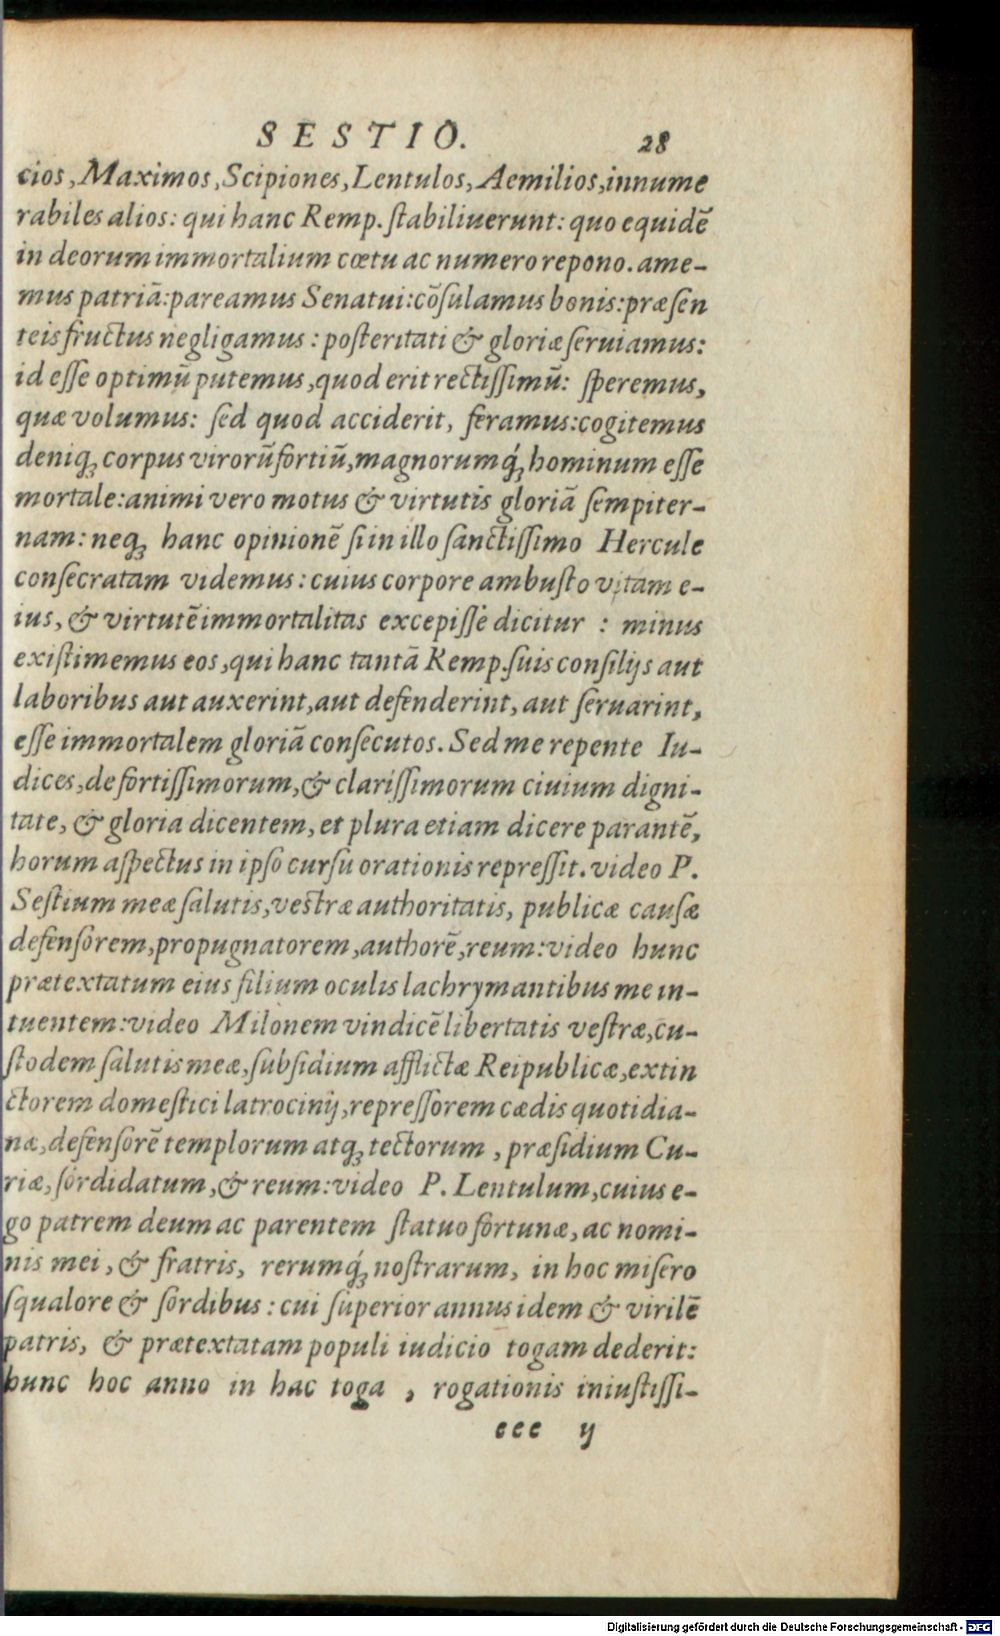 SESTIO. 28
cios, Maximos, Scipiones, Lentulos, Aemilios, innume
rabiles alios: qui hanc Remp. ſtabiliuerunt: quo equidẽ
in deorum immortalium cœtu ac numero repono. ame-
mus patriã: pareamus Senatui: cõſulamus bonis: præſen
teis fructus negligamus: poſteritati & gloriæ ſeruiamus:
id eſſe optimũ putemus, quod erit rectiſſimũ: ſperemus,
quæ volumus: ſed quod acciderit, feramus: cogitemus
deniq; corpus virorũ fortiũ, magnorumq́; hominum eſſe
mortale: animi vero motus & virtutis gloriã ſempiter-
nam: neq; hanc opinionẽ ſi in illo ſanctiſſimo Hercule
conſecratam videmus: cuius corpore ambuſto vitam e-
ius, & virtutẽ immortalitas excepiſſe dicitur: minus
exiſtimemus eos, qui hanc tantã Remp. ſuis conſilijs aut
laboribus aut auxerint, aut defenderint, aut ſeruarint,
eſſe immortalem gloriã conſecutos. Sed me repente Iu-
dices, de fortiſſimorum, & clariſſimorum ciuium digni-
tate, & gloria dicentem, et plura etiam dicere parantẽ,
horum aſpectus in ipſo curſu orationis repreſſit. video P.
Seſtium meæ ſalutis, veſtræ authoritatis, publicæ cauſæ
defenſorem, propugnatorem, authorẽ, reum: video hunc
prætextatum eius filium oculis lachrymantibus me in-
tuentem: video Milonem vindicẽ libertatis veſtræ, cu-
ſtodem ſalutis meæ, ſubſidium afflictæ Reipublicæ, extin
ctorem domeſtici latrocinij, repreſſorem cædis quotidia-
næ, defenſorẽ templorum atq; tectorum, præſidium Cu-
riæ, ſordidatum, & reum: video P. Lentulum, cuius e-
go patrem deum ac parentem ſtatuo fortunæ, ac nomi-
nis mei, & fratris, rerumq́; noſtrarum, in hoc miſero
ſqualore & ſordibus: cui ſuperior annus idem & virilẽ
patris, & prætextatam populi iudicio togam dederit:
hunc hoc anno in hac toga, rogationis iniuſtiſſi-
eee ij
Digitalisierung gefördert durch die Deutsche Forschungsgemeinschaft - DFG